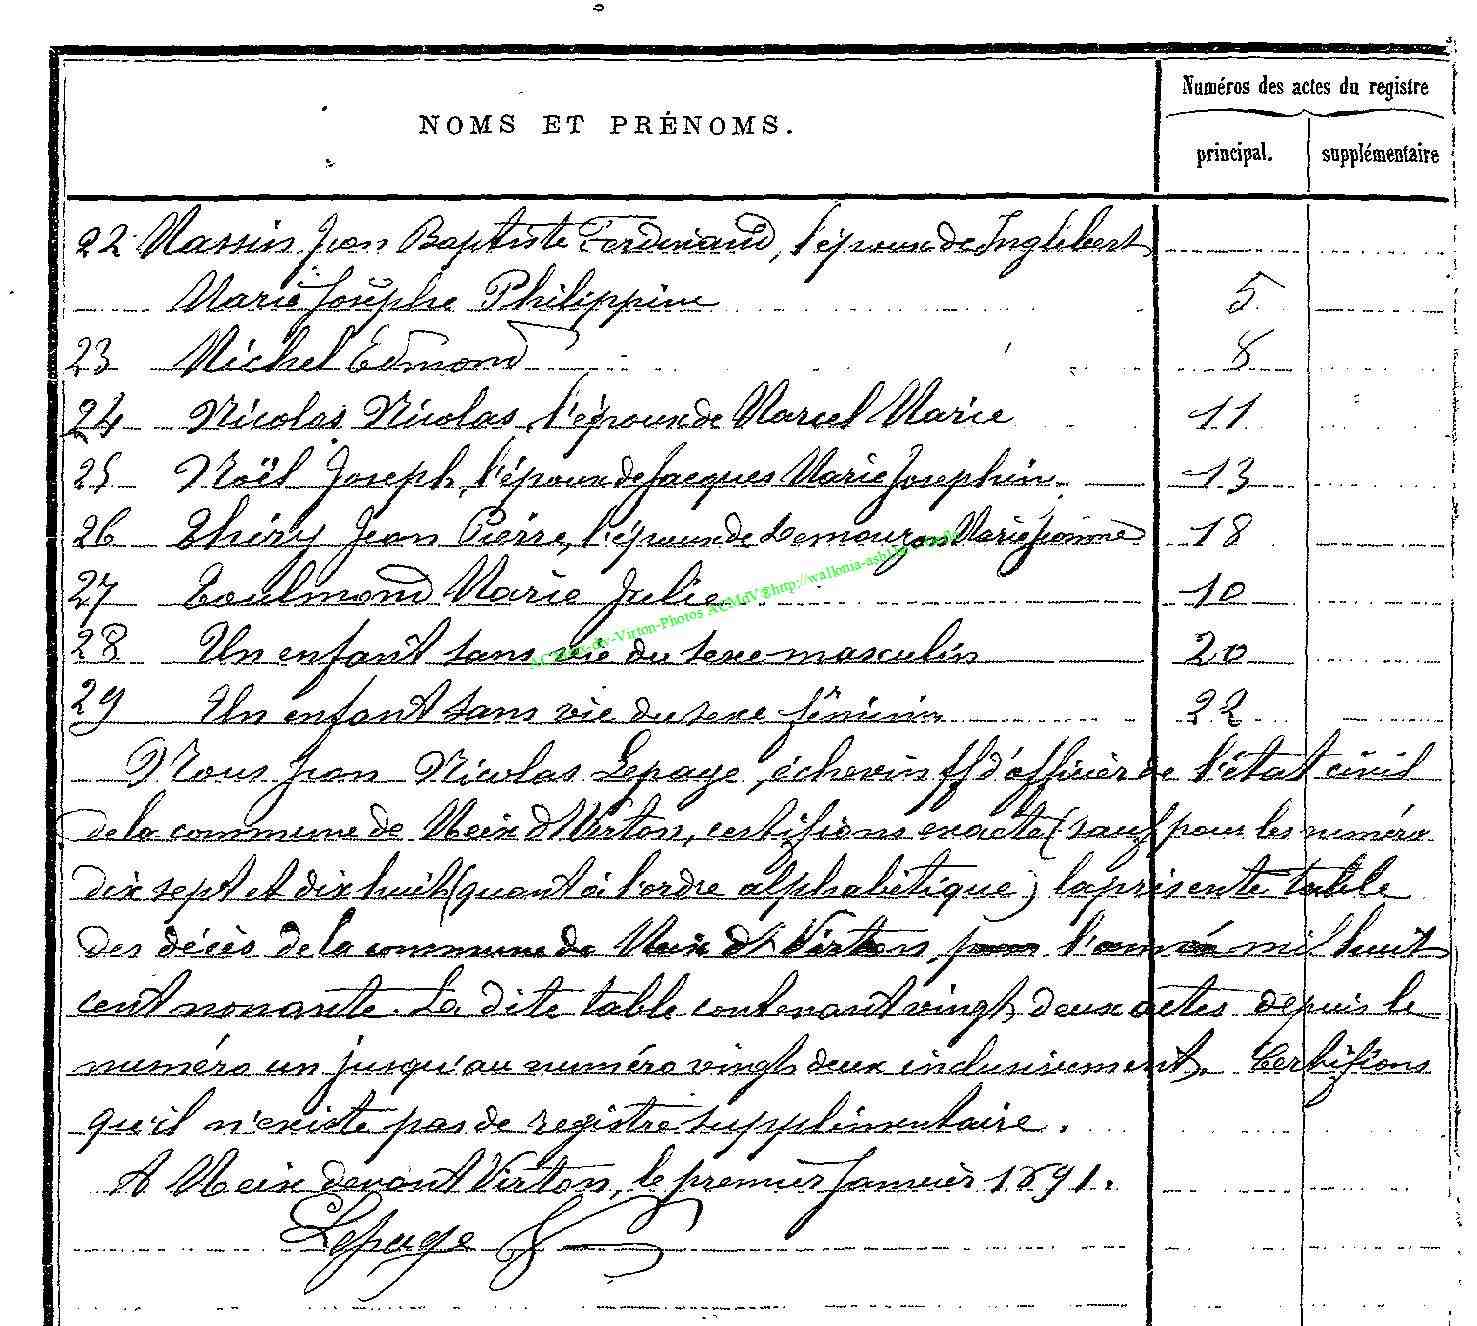 NOMS ET PRÉNOMS.
Numéros des actes du registre
principal. supplémentaire
22 Massin Jean Baptiste Ferdinand, l'époux de Inglebert
Marie Josèphe Philippine 5
23 Michel Edmond 8
24 Nicolas Nicolas, l'époux de Marcel Marie 11
25 Noël Joseph, l'époux de Jacques Marie Josephin 13
26 Thiry Jean Pierre, l'époux de Lemouzon Marie Jeanne 18
27 Toulmond Marie Julie 10
28 Un enfant sans vie du sexe masculin 20
29 Un enfant sans vie du sexe féminin 22
Nous Jean Nicolas Lepage, échevin ff d'officier de l'état civil
de la commune de Meix dt Virton, certifions exacte (sauf pour les numéro
dix sept et dix huit (quant à l'ordre alphabétique) la présente table
des décès de la commune de Meix dt Virton, pour l'année mil huit
cent nonante. La dite table contenant vingt deux actes depuis le
numéro un jusqu'au numéro vingt deux inclusivement. Certifions
qu'il n'existe pas de registre supplémentaire.
A Meix devant Virton, le premier Janvier 1891.
Lepage